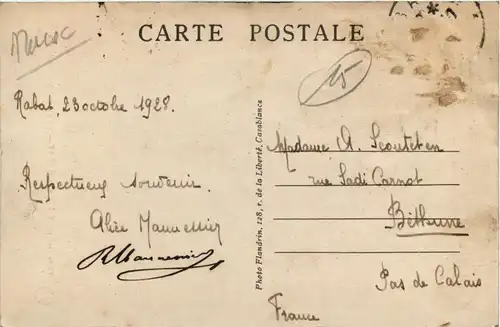 Maroc
CARTE POSTALE
15
Rabat, 23 octobre 1928.
Respectueux souvenir
Alice
Photo Flandrin, 128, r. de la Liberté, Casablanca
Madame A. Scouteten
rue Sadi Carnot
Béthune
Pas de Calais
France